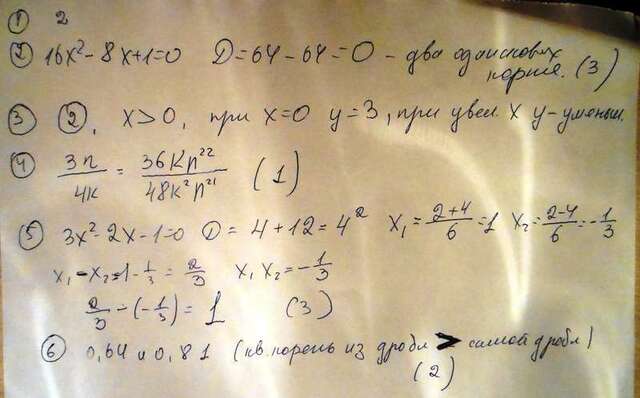 ① 2
② 16x² - 8x + 1 = 0 D = 64 - 64 = 0 - два одинаковых
корня. (3)
③ ②, x > 0, при x = 0 y = 3, при увел. x y - уменьш.
④ 3n/4k = 36Kn²²/48k²n²¹ (1)
⑤ 3x² - 2x - 1 = 0 D = 4 + 12 = 4² x₁ = (2+4)/6 = 1 x₂ = (2-4)/6 = -1/3
x₁ - x₂ = 1 - 1/3 = 2/3 x₁ x₂ = -1/3
2/3 - (-1/3) = 1 (3)
⑥ 0,64 и 0,81 (кв. корень из дроби > самой дроби)
(2)